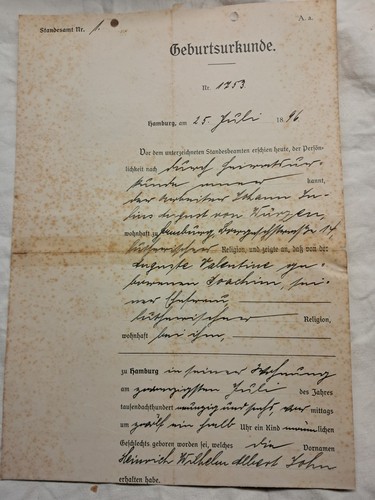 A 2.
Standesamt Nr. 1.
Geburtsurkunde.
Nr. 1253.
Hamburg, am 25. Juli 1896
Vor dem unterzeichneten Standesbeamten erschien heute, der Persön-
lichkeit nach durch Heiratsur-
kunde aner kannt,
der Arbeiter Johann Ju-
lius August von Würzen,
wohnhaft zu Hamburg, 14
lutherischer Religion, und zeigte an, daß von der
Auguste Valentine ge-
borenen Joachim, sei-
ner Ehefrau
lutherischer Religion,
wohnhaft bei ihm,
zu Hamburg in seiner Wohnung
am zwanzigsten Juli des Jahres
tausendachthundert neunzig und sechs vor mittags
um zwölf ein halb Uhr ein Kind männlichen
Geschlechts geboren worden sei, welches die Vornamen
Heinrich Wilhelm Albert John
erhalten habe.